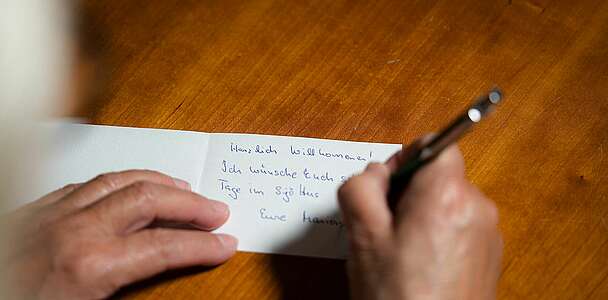 Herzlich Willkommen!
Ich wünsche Euch
Tage im Sjö Hus
Eure